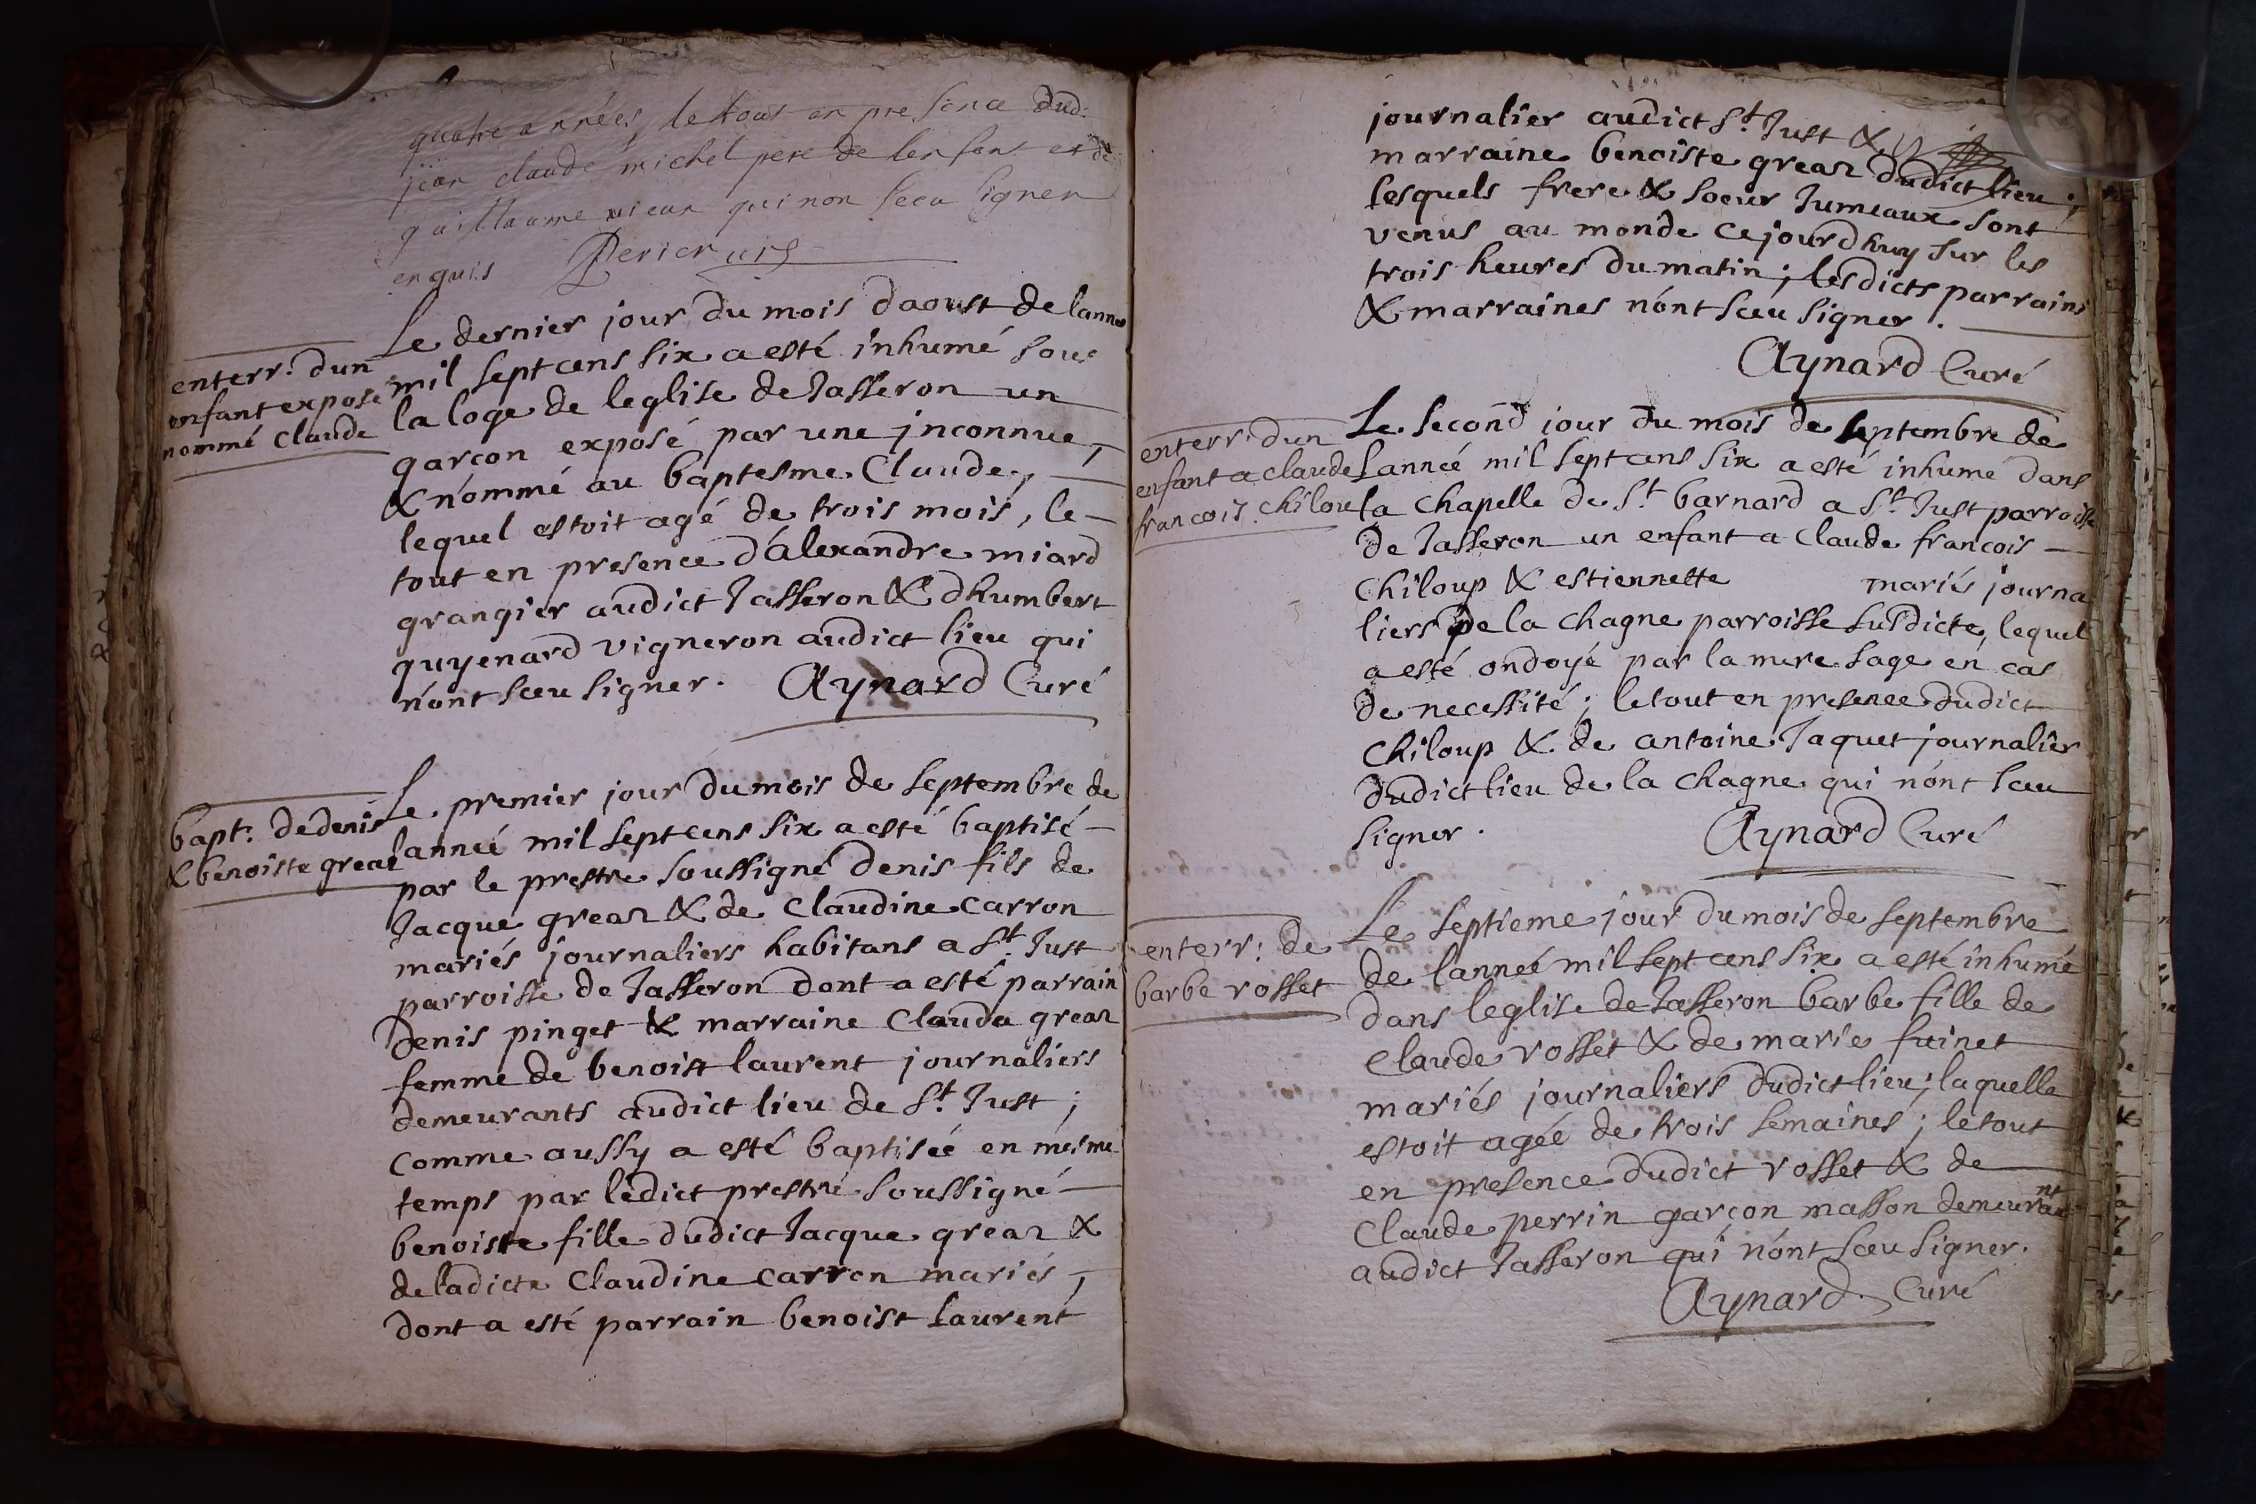 quatre années, le tout en presence dud.
jean claude michel pere de lenfant et de
guillaume vieux qui non sceu signer
enquis Perier vic
enterr: dun
enfant exposé
nommé Claude
Le dernier jour du mois daoust de lanneé
mil sept cens six a esté inhumé sous
la loge de leglise de Jasseron un
garçon exposé par une jnconnue,
& nommé au baptesme Claude,
lequel estoit agé de trois mois, le
tout en presence d'Alexandre miard
grangier audict Jasseron & dhumbert
guyenard vigneron audict lieu qui
n'ont sceu signer. Aynard Curé
bapt: de denis
& benoiste greaz
Le premier jour du mois de septembre de
lanneé mil sept cens six a esté baptisé
par le prestre soussigné denis fils de
Jacque greaz & de Claudine carron
mariés journaliers habitans a St Just
parroisse de Jasseron dont a esté parrain
denis pinget & marraine Clauda greaz
femme de benoist laurent journaliers
demeurants audict lieu de St Just;
comme aussy a esté baptisée en mesme
temps par ledict prestre soussigné
benoiste fille dudict Jacque greaz &
de ladicte Claudine carron mariés,
dont a esté parrain benoist laurent
journalier audict St Just &
marraine benoiste greaz dudict lieu;
lesquels frere & soeur Jumeaux sont
venus au monde cejourdhuy sur les
trois heures du matin; lesdicts parrains
& marraines n'ont sceu signer.
Aynard Curé
enterr: dun
enfant a claude
francois Chiloup
Le second jour du mois de septembre de
Lanneé mil sept cens six a esté inhumé dans
la Chapelle de St barnard a St Just parroisse
de Jasseron un enfant a Claude francois
Chiloup & estiennette mariés journa
liers de la Chagne parroisse susdicte, lequel
a esté ondoyé par la mere sage en cas
de necessité; le tout en presence dudict
Chiloup & de antoine Jaquet journalier
dudict lieu de la Chagne qui n'ont sceu
signer. Aynard Curé
enterr: de
barbe rosset
Le septieme jour du mois de septembre
de lanneé mil sept cens six a esté inhumé
dans leglise de Jasseron barbe fille de
Claude rosset & de marie fuinet
mariés journaliers dudict lieu; laquelle
estoit agée de trois semaines; le tout
en presence dudict rosset & de
Claude perrin garçon masson demeurant
audict Jasseron qui n'ont sceu signer.
Aynard Curé